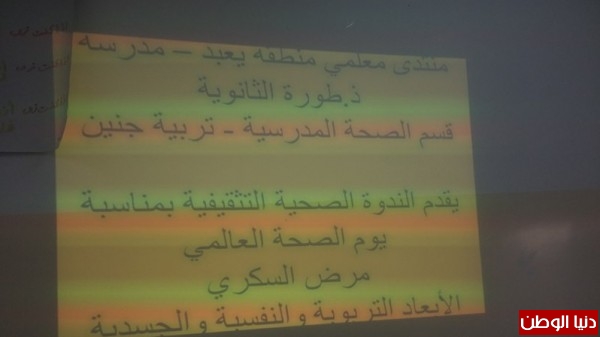 منتدى معلمي منطقة يعبد – مدرسة
ذ.طورة الثانوية
قسم الصحة المدرسية - تربية جنين
يقدم الندوة الصحية التثقيفية بمناسبة
يوم الصحة العالمي
مرض السكري
الأبعاد التربوية و النفسية و الجسدية
دنيا الوطن